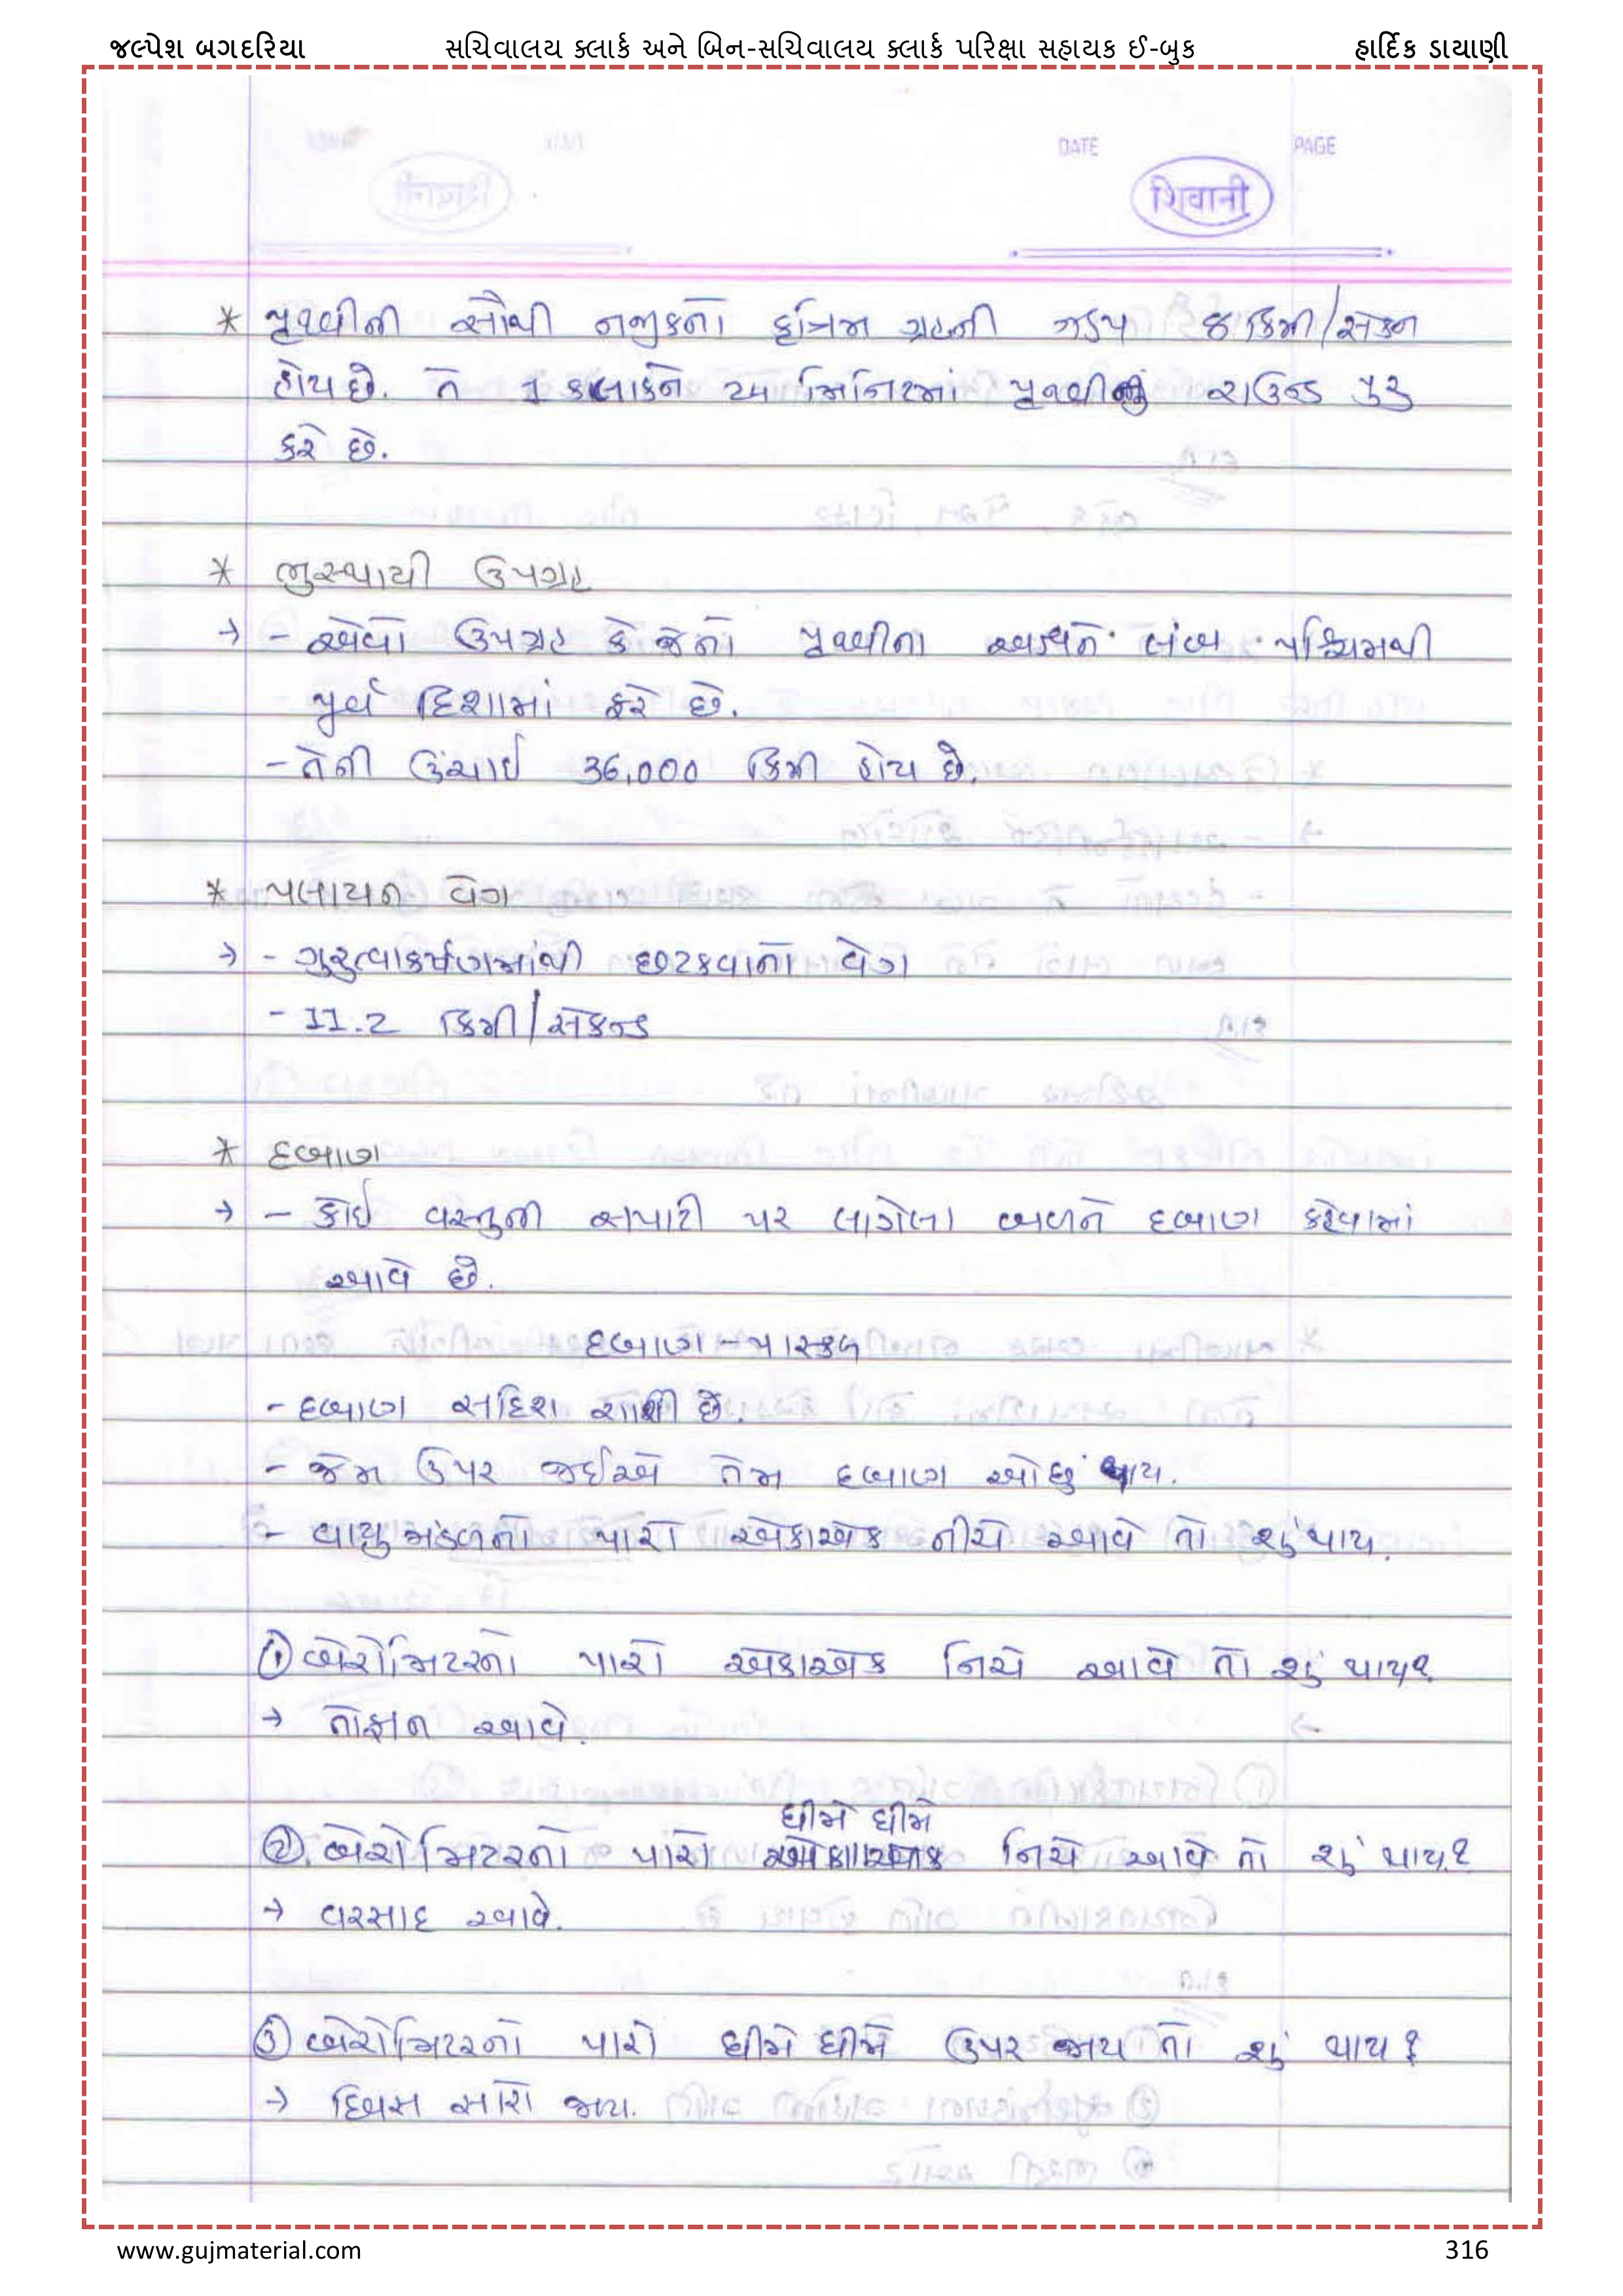 જલ્પેશ બગદરિયા સચિવાલય ક્લાર્ક અને બિન-સચિવાલય ક્લાર્ક પરિક્ષા સહાયક ઈ-બુક હાર્દિક ડાયાણી
DATE PAGE
शिवानी
* પૃથ્વીની સૌથી નજીકનો કૃત્રિમ ગ્રહની ઝડપ 8 કિમી/સેકન
હોય છે. તે 1 કલાકને મિનિટમાં પૃથ્વીનું રાઉન્ડ પુરુ
કરે છે.
* ભુસ્થાયી ઉપગ્રહ
→ - એવો ઉપગ્રહ કે જેનો પૃથ્વીના અક્ષને લંબ પશ્ચિમથી
પુર્વ દિશામાં ફરે છે.
- તેની ઉંચાઇ 36,000 કિમી હોય છે.
* પલાયન વેગ
→ - ગુરુત્વાકર્ષણમાંથી છટકવાનો વેગ
- 11.2 કિમી/સેકન્ડ
* દબાણ
→ - કોઇ વસ્તુની સપાટી પર લાગેલા બળને દબાણ કહેવામાં
આવે છે.
દબાણ - પાસ્કલ
- દબાણ સદિશ રાશી છે.
- જેમ ઉપર જઈએ તેમ દબાણ ઓછું થાય.
- વાયુમંડળનો પારો એકાએક નીચે આવે તો શું થાય.
① બેરોમિટરનો પારો એકાએક નિચે આવે તો શું થાય?
→ તોફાન આવે.
ધીમે ધીમે
②. બેરોમિટરનો પારો એકાએક નિચે આવે તો શું થાય?
→ વરસાદ આવે.
③ બેરોમિટરનો પારો ધીમે ધીમે ઉપર જાય તો શું થાય?
→ દિવસ સારો જાય.
www.gujmaterial.com 316